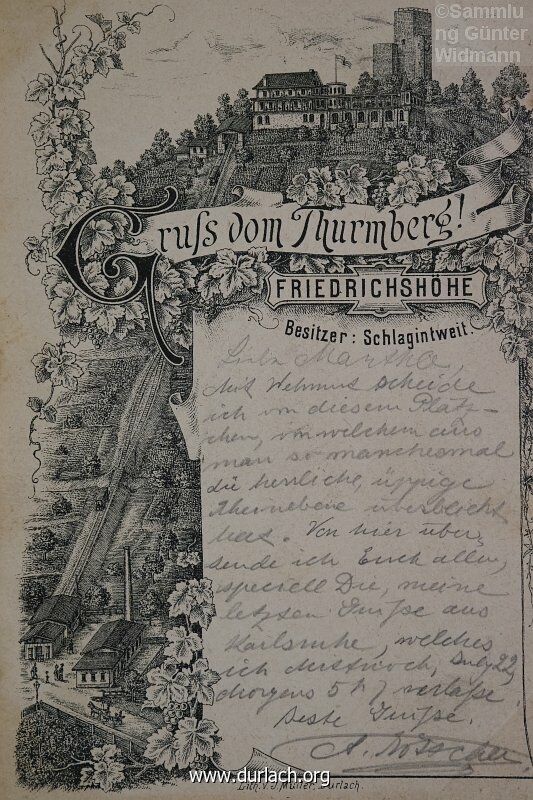 ©Sammlu
ng Günter
Widmann
Gruſs vom Thurmberg!
FRIEDRICHSHÖHE
Besitzer: Schlagintweit.
Liebe Martha,
Mit Wehmut scheide
ich von diesem Plätz-
chen, von welchem aus
man so manchesmal
die herrliche, üppige
Rheinebene überblickt
hat. Von hier über-
sende ich Euch allen,
speciell Dir, meine
letzten Grüße aus
Karlsruhe, welches
ich Mittwoch, July 22
Morgens 5 h verlaße.
Beste Grüße.
A.
Lith. v. J. Müller, Durlach.
www.durlach.org